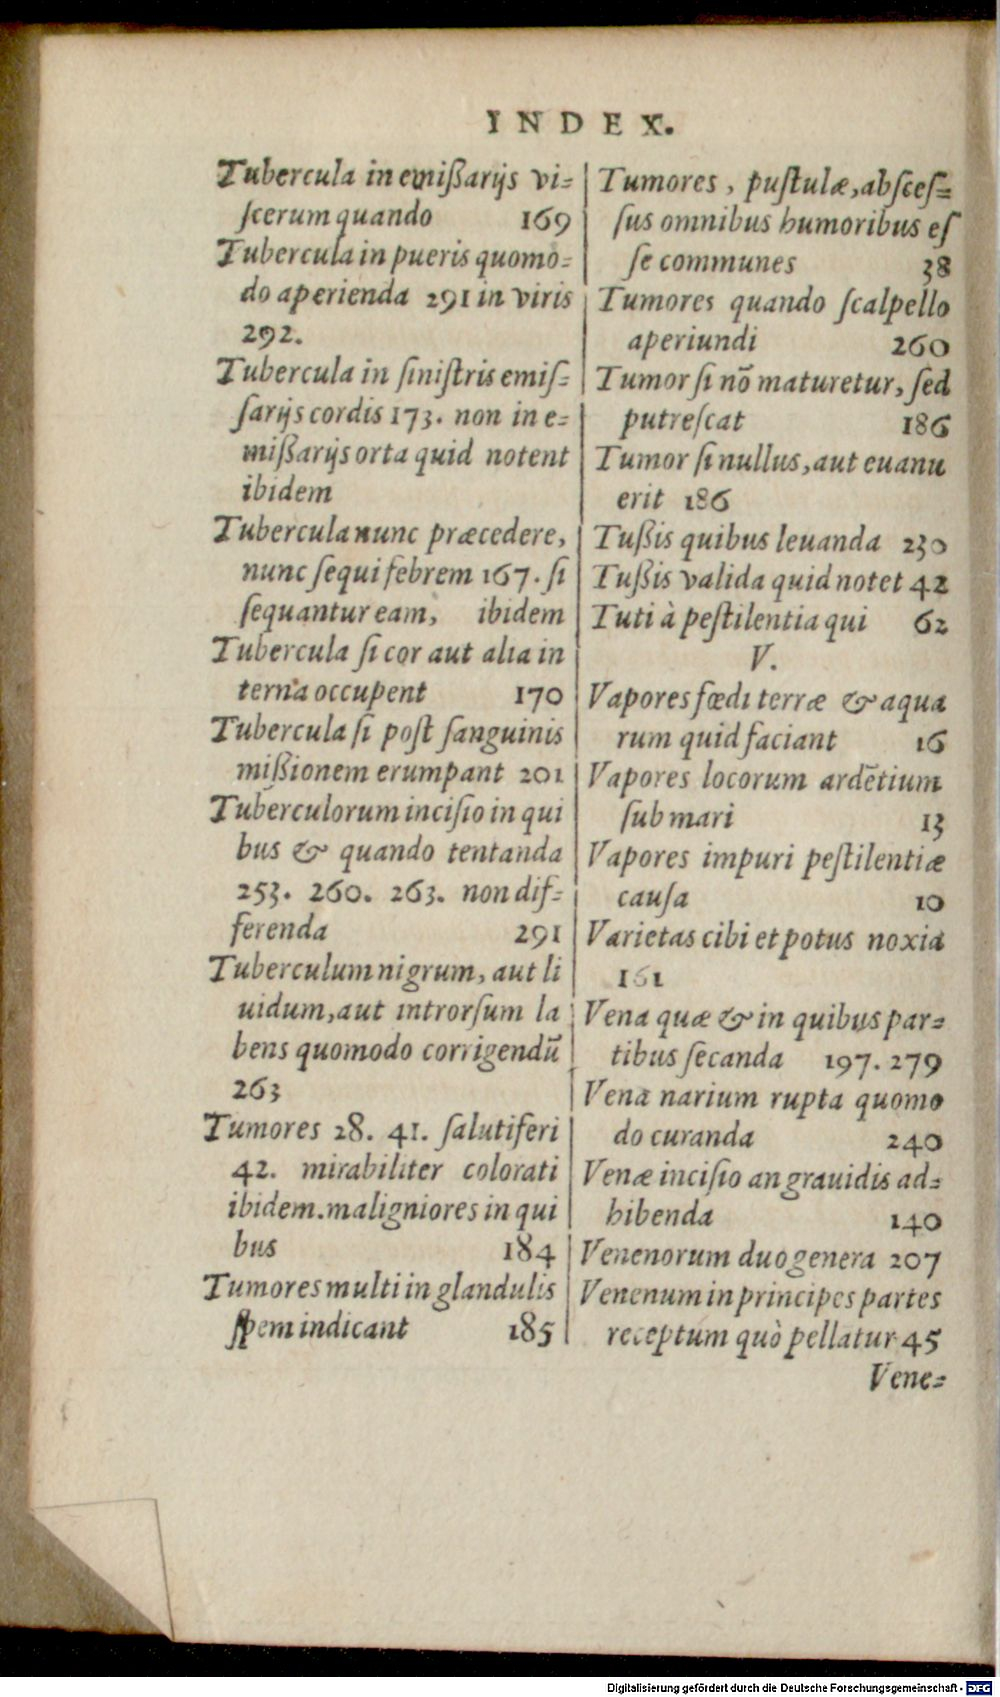 INDEX.
Tubercula in emißarijs vi=
ſcerum quando 169
Tubercula in pueris quomo=
do aperienda 291 in viris
292.
Tubercula in ſiniſtris emiſ=
ſarijs cordis 173. non in e=
mißarijs orta quid notent
ibidem
Tubercula nunc præcedere,
nunc ſequi febrem 167. ſi
ſequantur eam, ibidem
Tubercula ſi cor aut alia in
terna occupent 170
Tubercula ſi poſt ſanguinis
mißionem erumpant 201
Tuberculorum inciſio in qui
bus & quando tentanda
253. 260. 263. non dif=
ferenda 291
Tuberculum nigrum, aut li
uidum, aut introrſum la
bens quomodo corrigendũ
263
Tumores 28. 41. ſalutiferi
42. mirabiliter colorati
ibidem. maligniores in qui
bus 184
Tumores multi in glandulis
ſpem indicant 185
Tumores, puſtulæ, abſceſ=
ſus omnibus humoribus eſ
ſe communes 38
Tumores quando ſcalpello
aperiundi 260
Tumor ſi nõ maturetur, ſed
putreſcat 186
Tumor ſi nullus, aut euanu
erit 186
Tußis quibus leuanda 230
Tußis valida quid notet 42
Tuti à peſtilentia qui 62
V.
Vapores fœdi terræ & aqua
rum quid faciant 16
Vapores locorum ardẽtium
ſub mari 13
Vapores impuri peſtilentiæ
cauſa 10
Varietas cibi et potus noxia
161
Vena quæ & in quibus par=
tibus ſecanda 197. 279
Vena narium rupta quomo
do curanda 240
Venæ inciſio an grauidis ad=
hibenda 140
Venenorum duo genera 207
Venenum in principes partes
receptum quò pellatur 45
Vene=
Digitalisierung gefördert durch die Deutsche Forschungsgemeinschaft - DFG